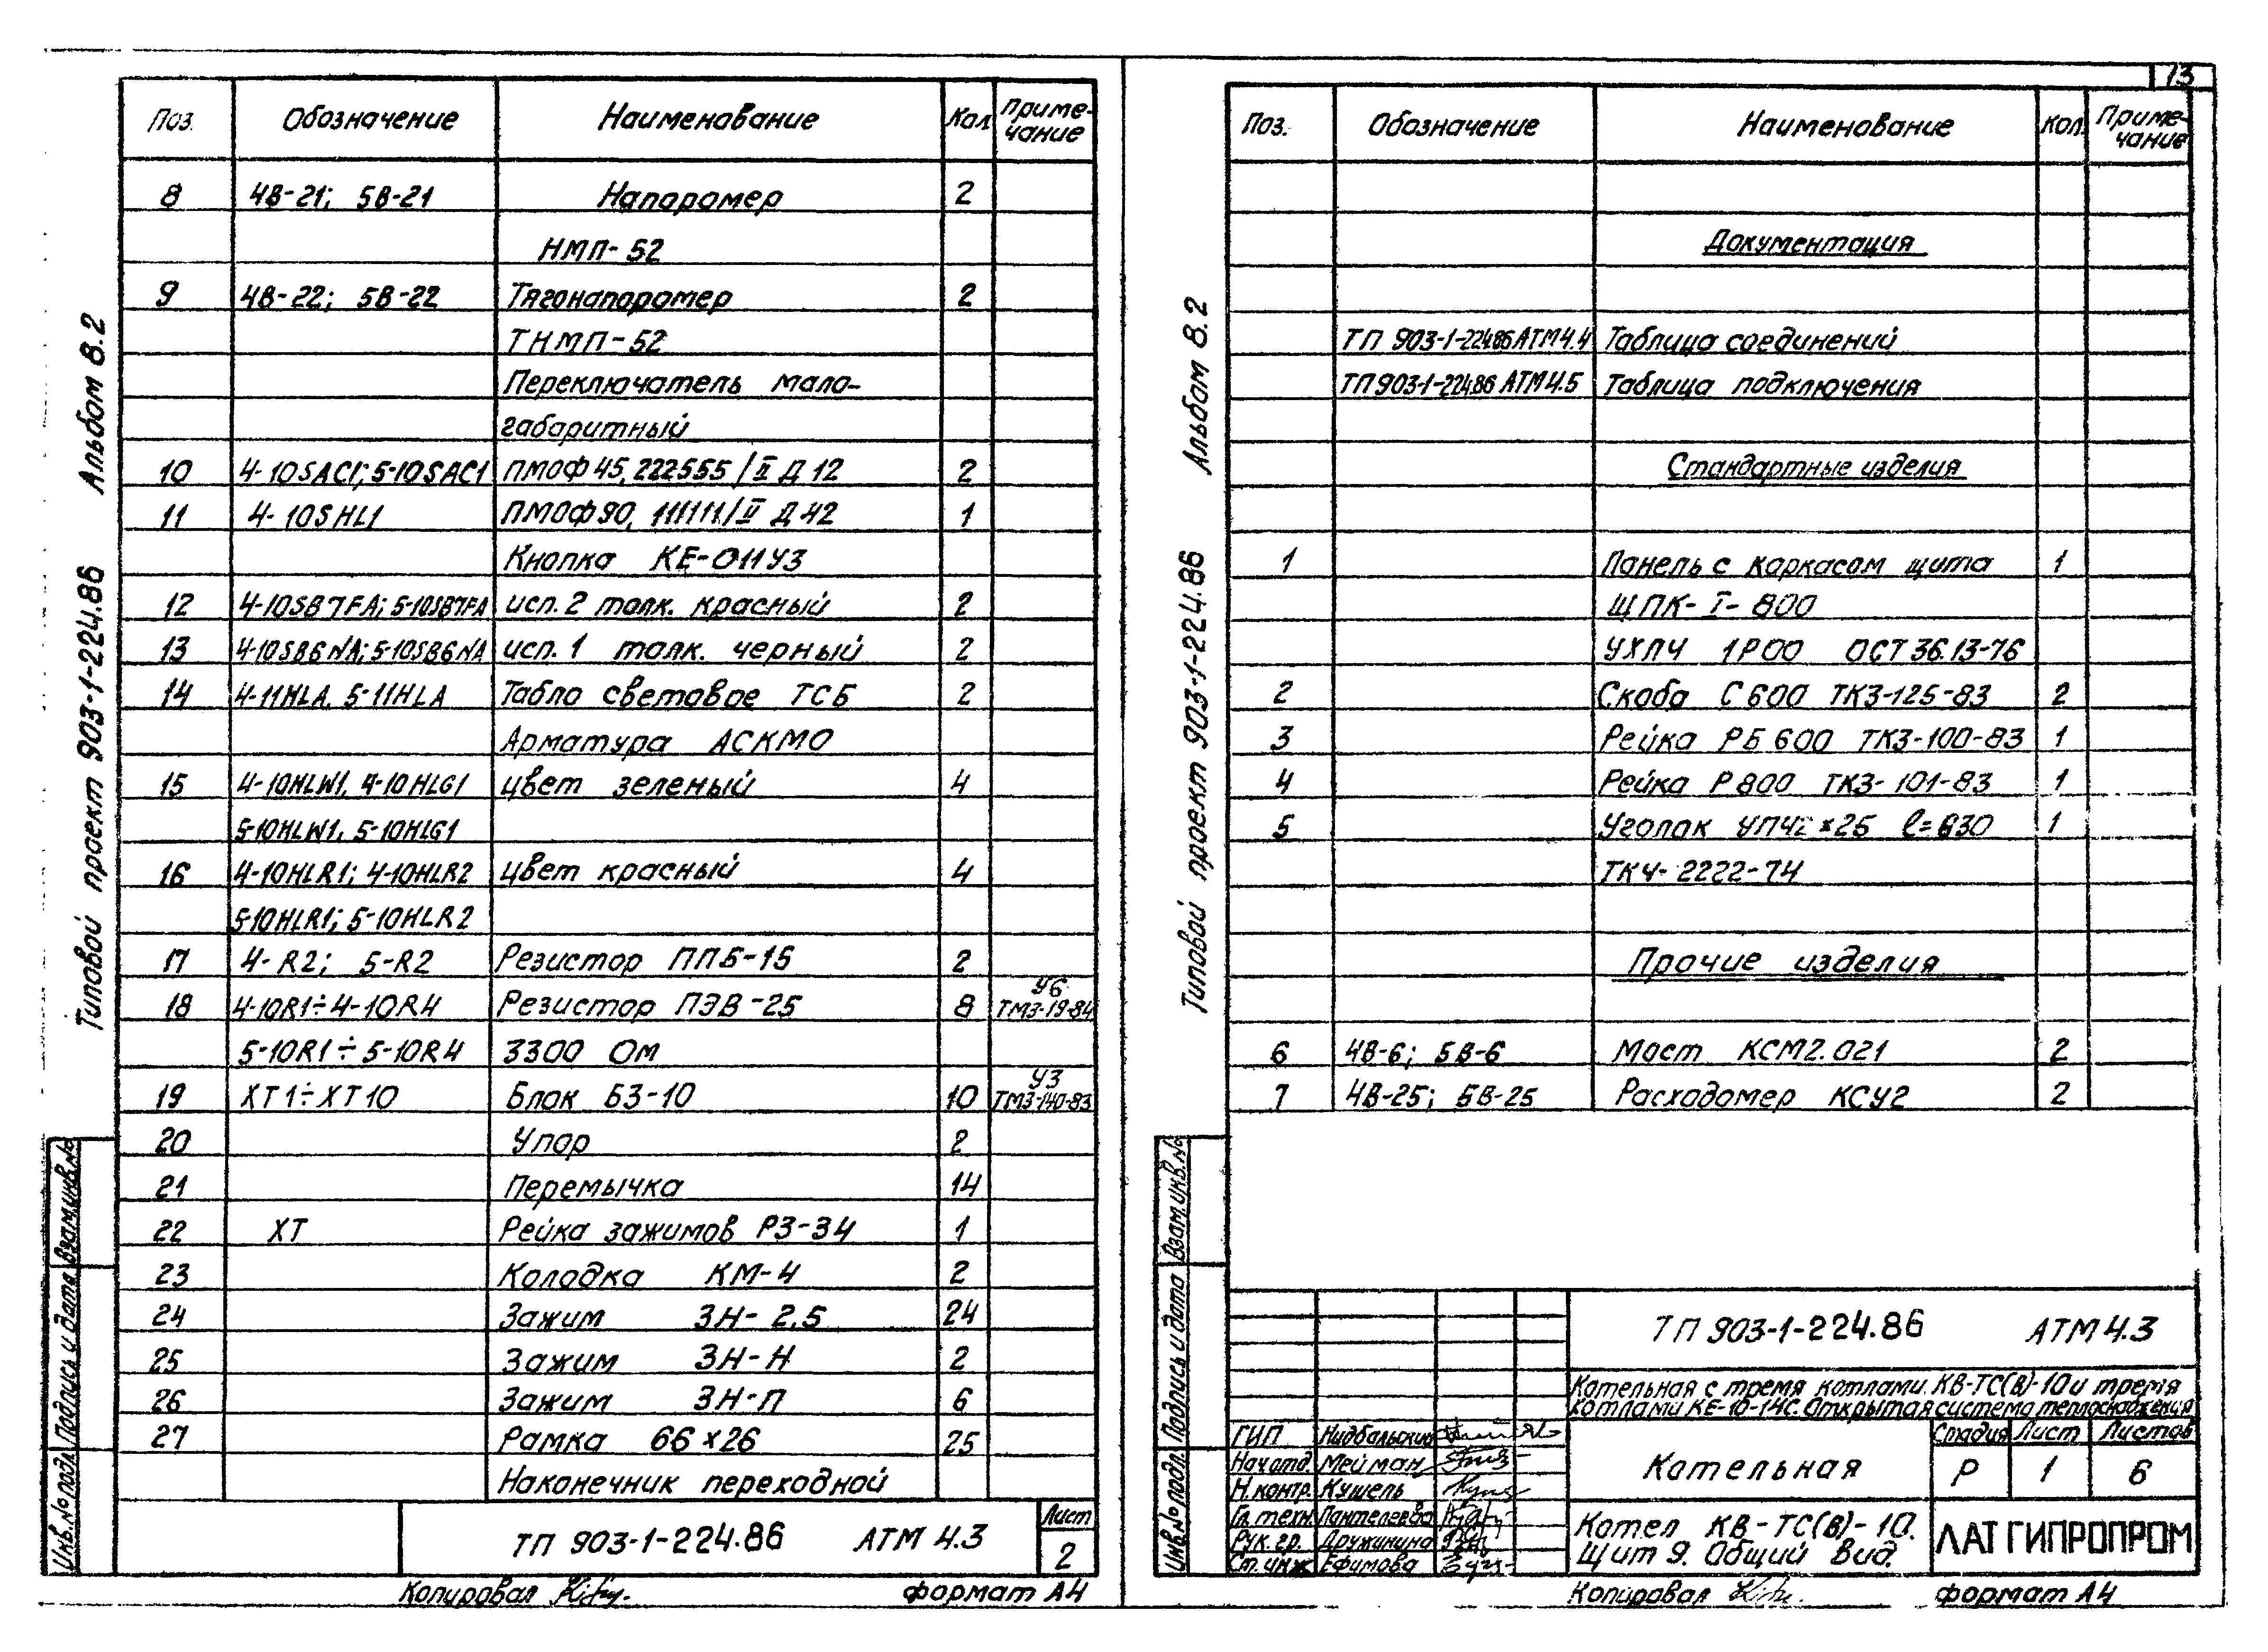 Типовой проект 903-1-224.86 Альбом 8.2
Поз. Обозначение Наименование Кол Приме-
чание
8 4В-21; 5В-21 Напоромер 2
НМП-52
9 4В-22; 5В-22 Тягонапоромер 2
ТНМП-52
Переключатель мало-
габаритный
10 4-10SAC1; 5-10SAC1 ПМОФ 45, 222555/II Д 12 2
11 4-10SHL1 ПМОФ 90, 111111/II Д 42 1
Кнопка КЕ-011У3
12 4-10SB7FA; 5-10SB7FA исп. 2 толк. красный 2
13 4-10SB6NA; 5-10SB6NA исп. 1 толк. черный 2
14 4-11HLA, 5-11HLA Табло световое ТСБ 2
Арматура АСКМО
15 4-10HLW1, 4-10HLG1 цвет зеленый 4
5-10HLW1, 5-10HLG1
16 4-10HLR1; 4-10HLR2 цвет красный 4
5-10HLR1; 5-10HLR2
17 4-R2; 5-R2 Резистор ППБ-15 2
18 4-10R1÷4-10R4 Резистор ПЭВ-25 8 У6
ТМ3-19-84
5-10R1÷5-10R4 3300 Ом
19 XT1÷XT10 Блок БЗ-10 10 У3
ТМ3-140-83
20 Упор 2
21 Перемычка 14
22 XT Рейка зажимов РЗ-34 1
23 Колодка КМ-4 2
24 Зажим ЗН-2,5 24
25 Зажим ЗН-Н 2
26 Зажим ЗН-П 6
27 Рамка 66×26 25
Наконечник переходной
ТП 903-1-224.86 АТМ 4.3 Лист
2
Инв.№ подл. Подпись и дата Взам.инв.№
Копировал формат А4
13
Типовой проект 903-1-224.86 Альбом 8.2
Поз. Обозначение Наименование Кол. Приме-
чание
Документация
ТП 903-1-224.86 АТМ4.4 Таблица соединений
ТП 903-1-224.86 АТМ4.5 Таблица подключения
Стандартные изделия
1 Панель с каркасом щита 1
ЩПК-I-800
УХЛ4 1Р00 ОСТ 36.13-76
2 Скоба С600 ТК3-125-83 2
3 Рейка РБ600 ТК3-100-83 1
4 Рейка Р800 ТК3-101-83 1
5 Уголок УП42×25 l=630 1
ТК4-2222-74
Прочие изделия
6 4В-6; 5В-6 Мост КСМ2.021 2
7 4В-25; 5В-25 Расходомер КСУ2 2
Инв.№ подл. Подпись и дата Взам.инв.№
ТП 903-1-224.86 АТМ 4.3
Котельная с тремя котлами КВ-ТС(В)-10 и тремя
котлами КЕ-10-14С. Открытая система теплоснабжения
ГИП Нидбальский
Нач.отд. Мейман
Н.контр. Кушель
Гл.техн. Пантелеева
Рук.гр. Дружинина
Ст.инж. Ефимова
Котельная
Стадия Лист Листов
Р 1 6
Котел КВ-ТС(В)-10.
Щит 9. Общий вид.
ЛАТГИПРОПРОМ
Копировал формат А4